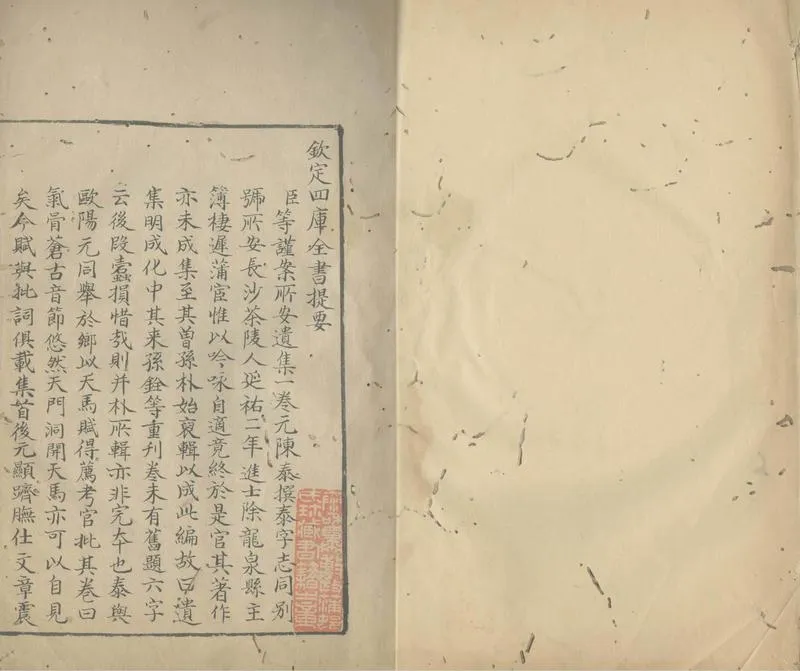 欽定四庫全書提要
臣等謹案所安遺集一卷元陳泰撰泰字志同別
號所安長沙茶陵人延祐二年進士除龍泉縣主
簿棲遲蒲宦惟以吟咏自適竟終於是官其著作
亦未成集至其曾孫朴始裒輯以成此編故曰遺
集明成化中其来孫銓等重刊卷末有舊題六字
云後段蠹損惜哉則并朴所輯亦非完本也泰與
歐陽元同舉於鄉以天馬賦得薦考官批其卷曰
氣骨蒼古音節悠然天門洞開天馬亦可以自見
矣今賦與批詞俱載集首後元顯躋膴仕文章震